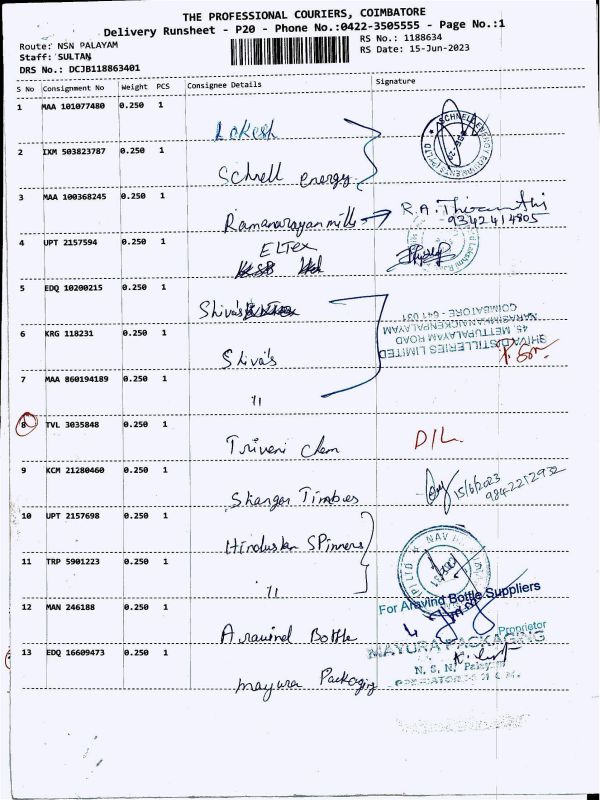 THE PROFESSIONAL COURIERS, COIMBATORE
Delivery Runsheet - P20 - Phone No.:0422-3505555 - Page No.:1
Route: NSN PALAYAM
RS No.: 1188634
Staff: SULTAN
RS Date: 15-Jun-2023
DRS No.: DCJB118863401
S No Consignment No Weight PCS Consignee Details Signature
1 MAA 101077480 0.250 1
Lokesh
2 IXM 503823787 0.250 1
Schnell energy
3 MAA 100368245 0.250 1
Ramanarayan mills R.A. Thiranthi
9342414805
4 UPT 2157594 0.250 1
ELTex
5 EDQ 10200215 0.250 1
Shiva's
6 KRG 118231 0.250 1
Shiva's
SHIVA DISTILLERIES LIMITED
45, METTUPALAYAM ROAD
NARASIMHANAICKENPALAYAM
COIMBATORE - 641 031
7 MAA 860194189 0.250 1
11
8 TVL 3035848 0.250 1
Triveni Chem D/L.
9 KCM 21280460 0.250 1
Shangar Timbers 15/6/2023
9842212932
10 UPT 2157698 0.250 1
Hindustan SPinners
11 TRP 5901223 0.250 1
11
12 MAN 246188 0.250 1
For Aravind Bottle Suppliers
Aravind Bottle
Proprietor
13 EDQ 16609473 0.250 1
MAYURA PACKAGING
N. S. N. Palayam
Mayura Packaging